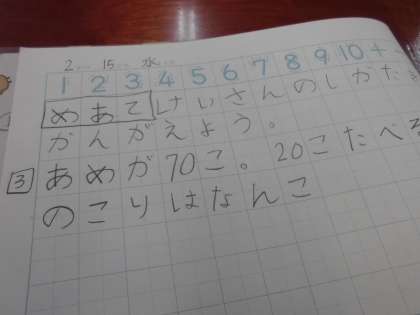 2 15 水
1 2 3 4 5 6 7 8 9 10 +
めあて けいさんのしかた
がんがえよう。
③ あめが70こ。20こたべ
のこりはなんこ